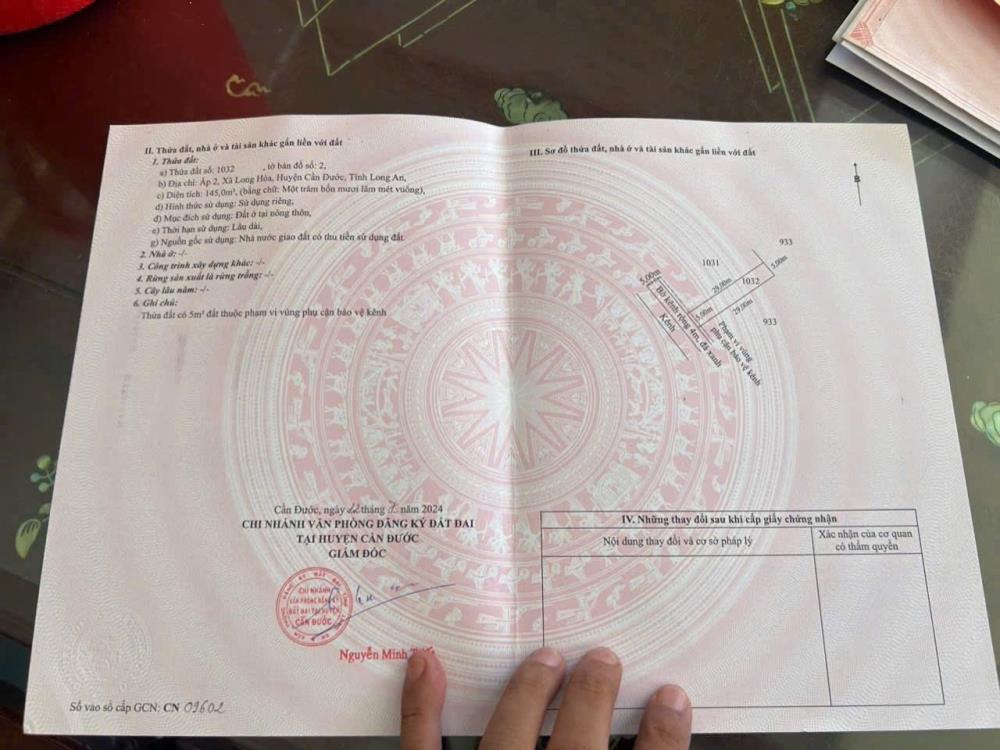 II. Thửa đất, nhà ở và tài sản khác gắn liền với đất
1. Thửa đất:
a) Thửa đất số: 1032 , tờ bản đồ số: 2,
b) Địa chỉ: Ấp 2, Xã Long Hòa, Huyện Cần Đước, Tỉnh Long An,
c) Diện tích: 145,0m², (bằng chữ: Một trăm bốn mươi lăm mét vuông),
d) Hình thức sử dụng: Sử dụng riêng,
đ) Mục đích sử dụng: Đất ở tại nông thôn,
e) Thời hạn sử dụng: Lâu dài,
g) Nguồn gốc sử dụng: Nhà nước giao đất có thu tiền sử dụng đất.
2. Nhà ở: -/-
3. Công trình xây dựng khác: -/-
4. Rừng sản xuất là rừng trồng: -/-
5. Cây lâu năm: -/-
6. Ghi chú:
Thửa đất có 5m² đất thuộc phạm vi vùng phụ cận bảo vệ kênh
Cần Đước, ngày 22 tháng 7 năm 2024
CHI NHÁNH VĂN PHÒNG ĐĂNG KÝ ĐẤT ĐAI
TẠI HUYỆN CẦN ĐƯỚC
GIÁM ĐỐC
CHI NHÁNH
VĂN PHÒNG ĐĂNG KÝ
ĐẤT ĐAI TẠI HUYỆN
CẦN ĐƯỚC
Nguyễn Minh
Số vào sổ cấp GCN: CN 09602
III. Sơ đồ thửa đất, nhà ở và tài sản khác gắn liền với đất
B
933
1031
5,00m
5,00m
29,00m
1032
5,00m
29,00m
933
Bờ kênh rộng 4m, đá xanh
Kênh
Phạm vi vùng
phụ cận bảo vệ kênh
IV. Những thay đổi sau khi cấp giấy chứng nhận
Nội dung thay đổi và cơ sở pháp lý
Xác nhận của cơ quan
có thẩm quyền